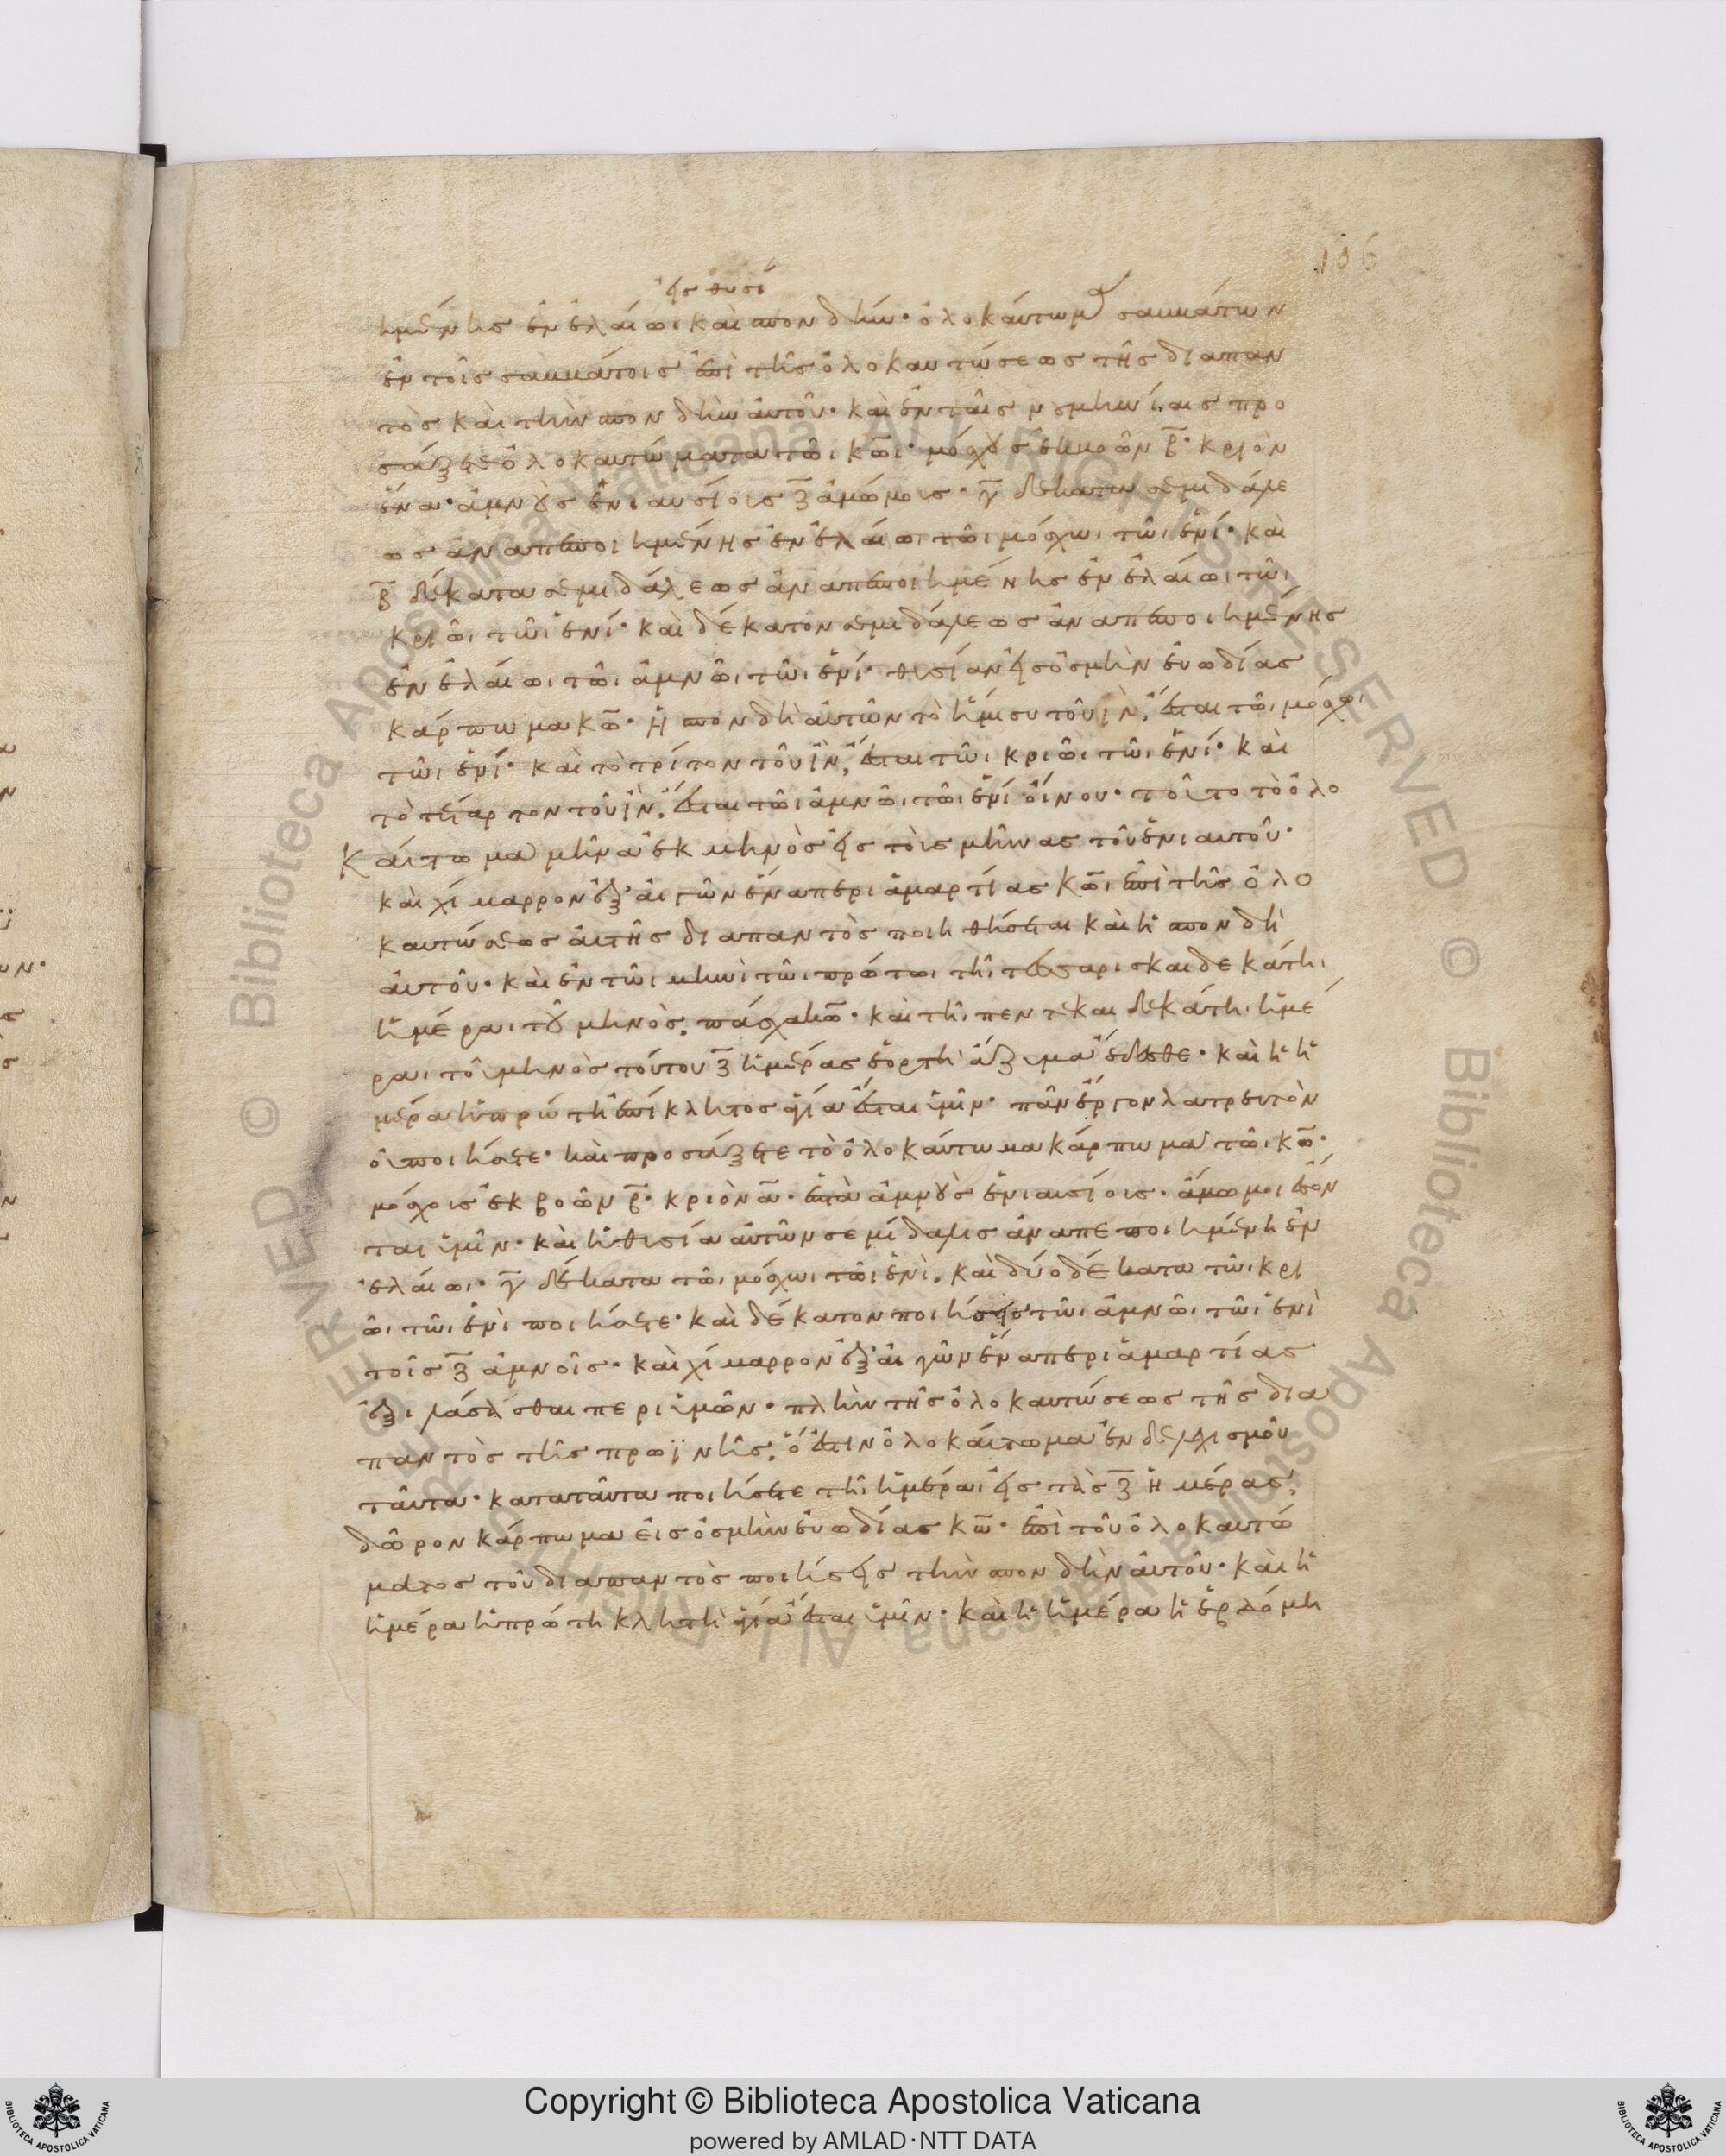 106
εἰς θυσί
ημένης ἐν ἐλαίωι καὶ σπονδήν· ὁλοκαύτωμα σαββάτων
ἐν τοῖς σαββάτοις ἐπὶ τῆς ὁλοκαυτώσεως τῆς διαπαν
τὸς καὶ τὴν σπονδὴν αὐτοῦ· καὶ ἐν ταῖς νουμηνίαις προ
σάξετε ὁλοκαυτώματα τῶι κ̅ω̅ι· μόσχους ἐκ βοῶν β̅· κριὸν
ἕνα· ἀμνοὺς ἐνιαυσίους ζ̅ ἀμώμους· γ̅ δέκατα σεμιδάλε
ως ἀναπεποιημένης ἐν ἐλαίωι τῶι μόσχωι τῶι ἑνί· καὶ
β̅ δέκατα σεμιδάλεως ἀναπεποιημένης ἐν ἐλαίωι τῶι
κριῶι τῶι ἑνί· καὶ δέκατον σεμιδάλεως ἀναπεποιημένης
ἐν ἐλαίωι τῶι ἀμνῶι τῶι ἑνί· θυσίαν εἰς ὀσμὴν εὐωδίας
κάρπωμα κ̅ω̅· ἡ σπονδὴ αὐτῶν τὸ ἥμισυ τοῦ ἲν, ἔσται τῶι μόσχωι
τῶι ἑνί· καὶ τὸ τρίτον τοῦ ἲν, ἔσται τῶι κριῶι τῶι ἑνί· καὶ
τὸ τέταρτον τοῦ ἲν, ἔσται τῶι ἀμνῶι τῶι ἑνί οἴνου· τοῦτο τὸ ὁλο
Καύτωμα μῆνα ἐκ μηνὸς εἰς τοὺς μῆνας τοῦ ἐνιαυτοῦ·
καὶ χίμαρρον ἐξ αἰγῶν ἕνα περι ἁμαρτίας κ̅ω̅ι ἐπὶ τῆς ὁλο
καυτώσεως αὐτῆς διαπαντὸς ποιηθήσεται καὶ ἡ σπονδὴ
αὐτοῦ· καὶ ἐν τῶι μηνὶ τῶι πρώτωι τῆι τεσσαρισκαιδεκάτηι
ἡμέραι τοῦ μηνὸς, πάσχα κ̅ω̅· καὶ τῆι πεντεκαιδεκάτηι ἡμέ
ραι τοῦ μηνὸς τούτου ζ̅ ἡμέρας ἑορτὴ ἄζυμα ἔδεσθε· καὶ ἡ ἡ
μέρα ἡ πρώτη ἐπίκλητος ἁγία ἔσται ὑμῖν· πᾶν ἔργον λατρευτὸν
οὐ ποιήσετε· καὶ προσάξετε τὸ ὁλοκαύτωμα κάρπωμα τῶι κ̅ω̅·
μόσχους ἐκ βοῶν β̅· κριὸν α̅· ἑπτὰ ἀμνοὺς ἐνιαυσίους· ἄμωμοι ἔσον
ται ὑμῖν· καὶ ἡ θυσία αὐτῶν σεμίδαλις ἀναπεποιημένη ἐν
ἐλαίωι· γ̅ δέκατα τῶι μόσχωι τῶι ἑνὶ, καὶ δύο δέκατα τῶι κρι
ῶι τῶι ἑνὶ ποιήσετε· καὶ δέκατον ποιήσεις τῶι ἀμνῶι τῶι ἑνὶ
τοῖς ζ̅ ἀμνοῖς· καὶ χίμαρρον ἐξ αἰγῶν ἕνα περι ἁμαρτίας
ἐξιλάσασθαι περι ὑμῶν· πλὴν τῆς ὁλοκαυτώσεως τῆς δια
παντὸς τῆς πρωϊνῆς, ὅ ἐστιν ὁλοκαύτωμα ἐνδελεχισμοῦ
ταῦτα· κατα ταῦτα ποιήσετε τὴν ἡμέραν εἰς τὰς ζ̅ ἡμέρας,
δῶρον κάρπωμα εἰς ὀσμὴν εὐωδίας κ̅ω̅· ἐπὶ τοῦ ὁλοκαυτώ
ματος τοῦ διαπαντὸς ποιήσεις τὴν σπονδὴν αὐτοῦ· καὶ ἡ
ἡμέρα ἡ πρώτη κλητὴ ἁγία ἔσται ὑμῖν· καὶ ἡ ἡμέρα ἡ ἑβδόμη
© Biblioteca Apostolica Vaticana ALL RIGHTS RESERVED
Copyright © Biblioteca Apostolica Vaticana
powered by AMLAD·NTT DATA
BIBLIOTECA APOSTOLICA VATICANA
BIBLIOTECA APOSTOLICA VATICANA